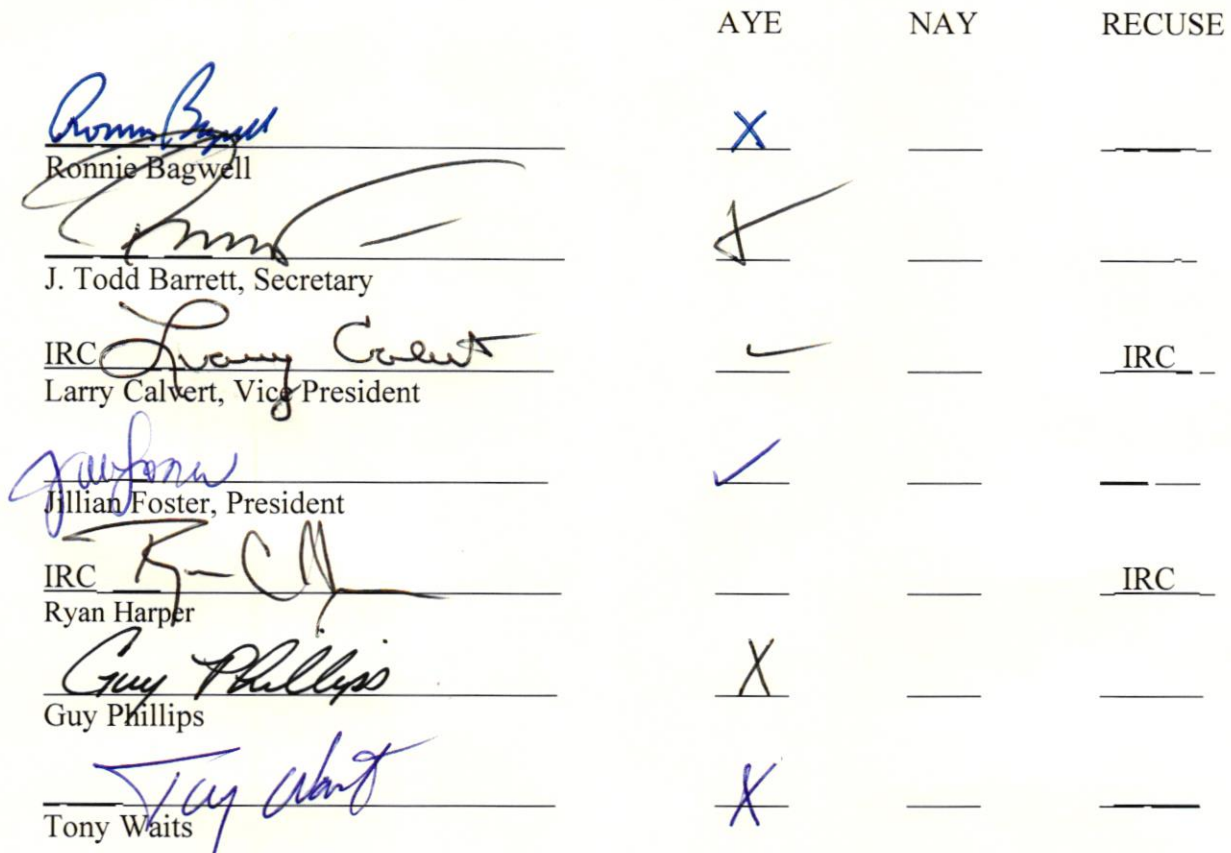 AYE NAY RECUSE
Ronnie Bagwell X
Ronnie Bagwell
J. Todd Barrett, Secretary
IRC Larry Calvert ✓ IRC
Larry Calvert, Vice President
✓
Jillian Foster, President
IRC IRC
Ryan Harper
Guy Phillips X
Guy Phillips
Tony Waits X
Tony Waits